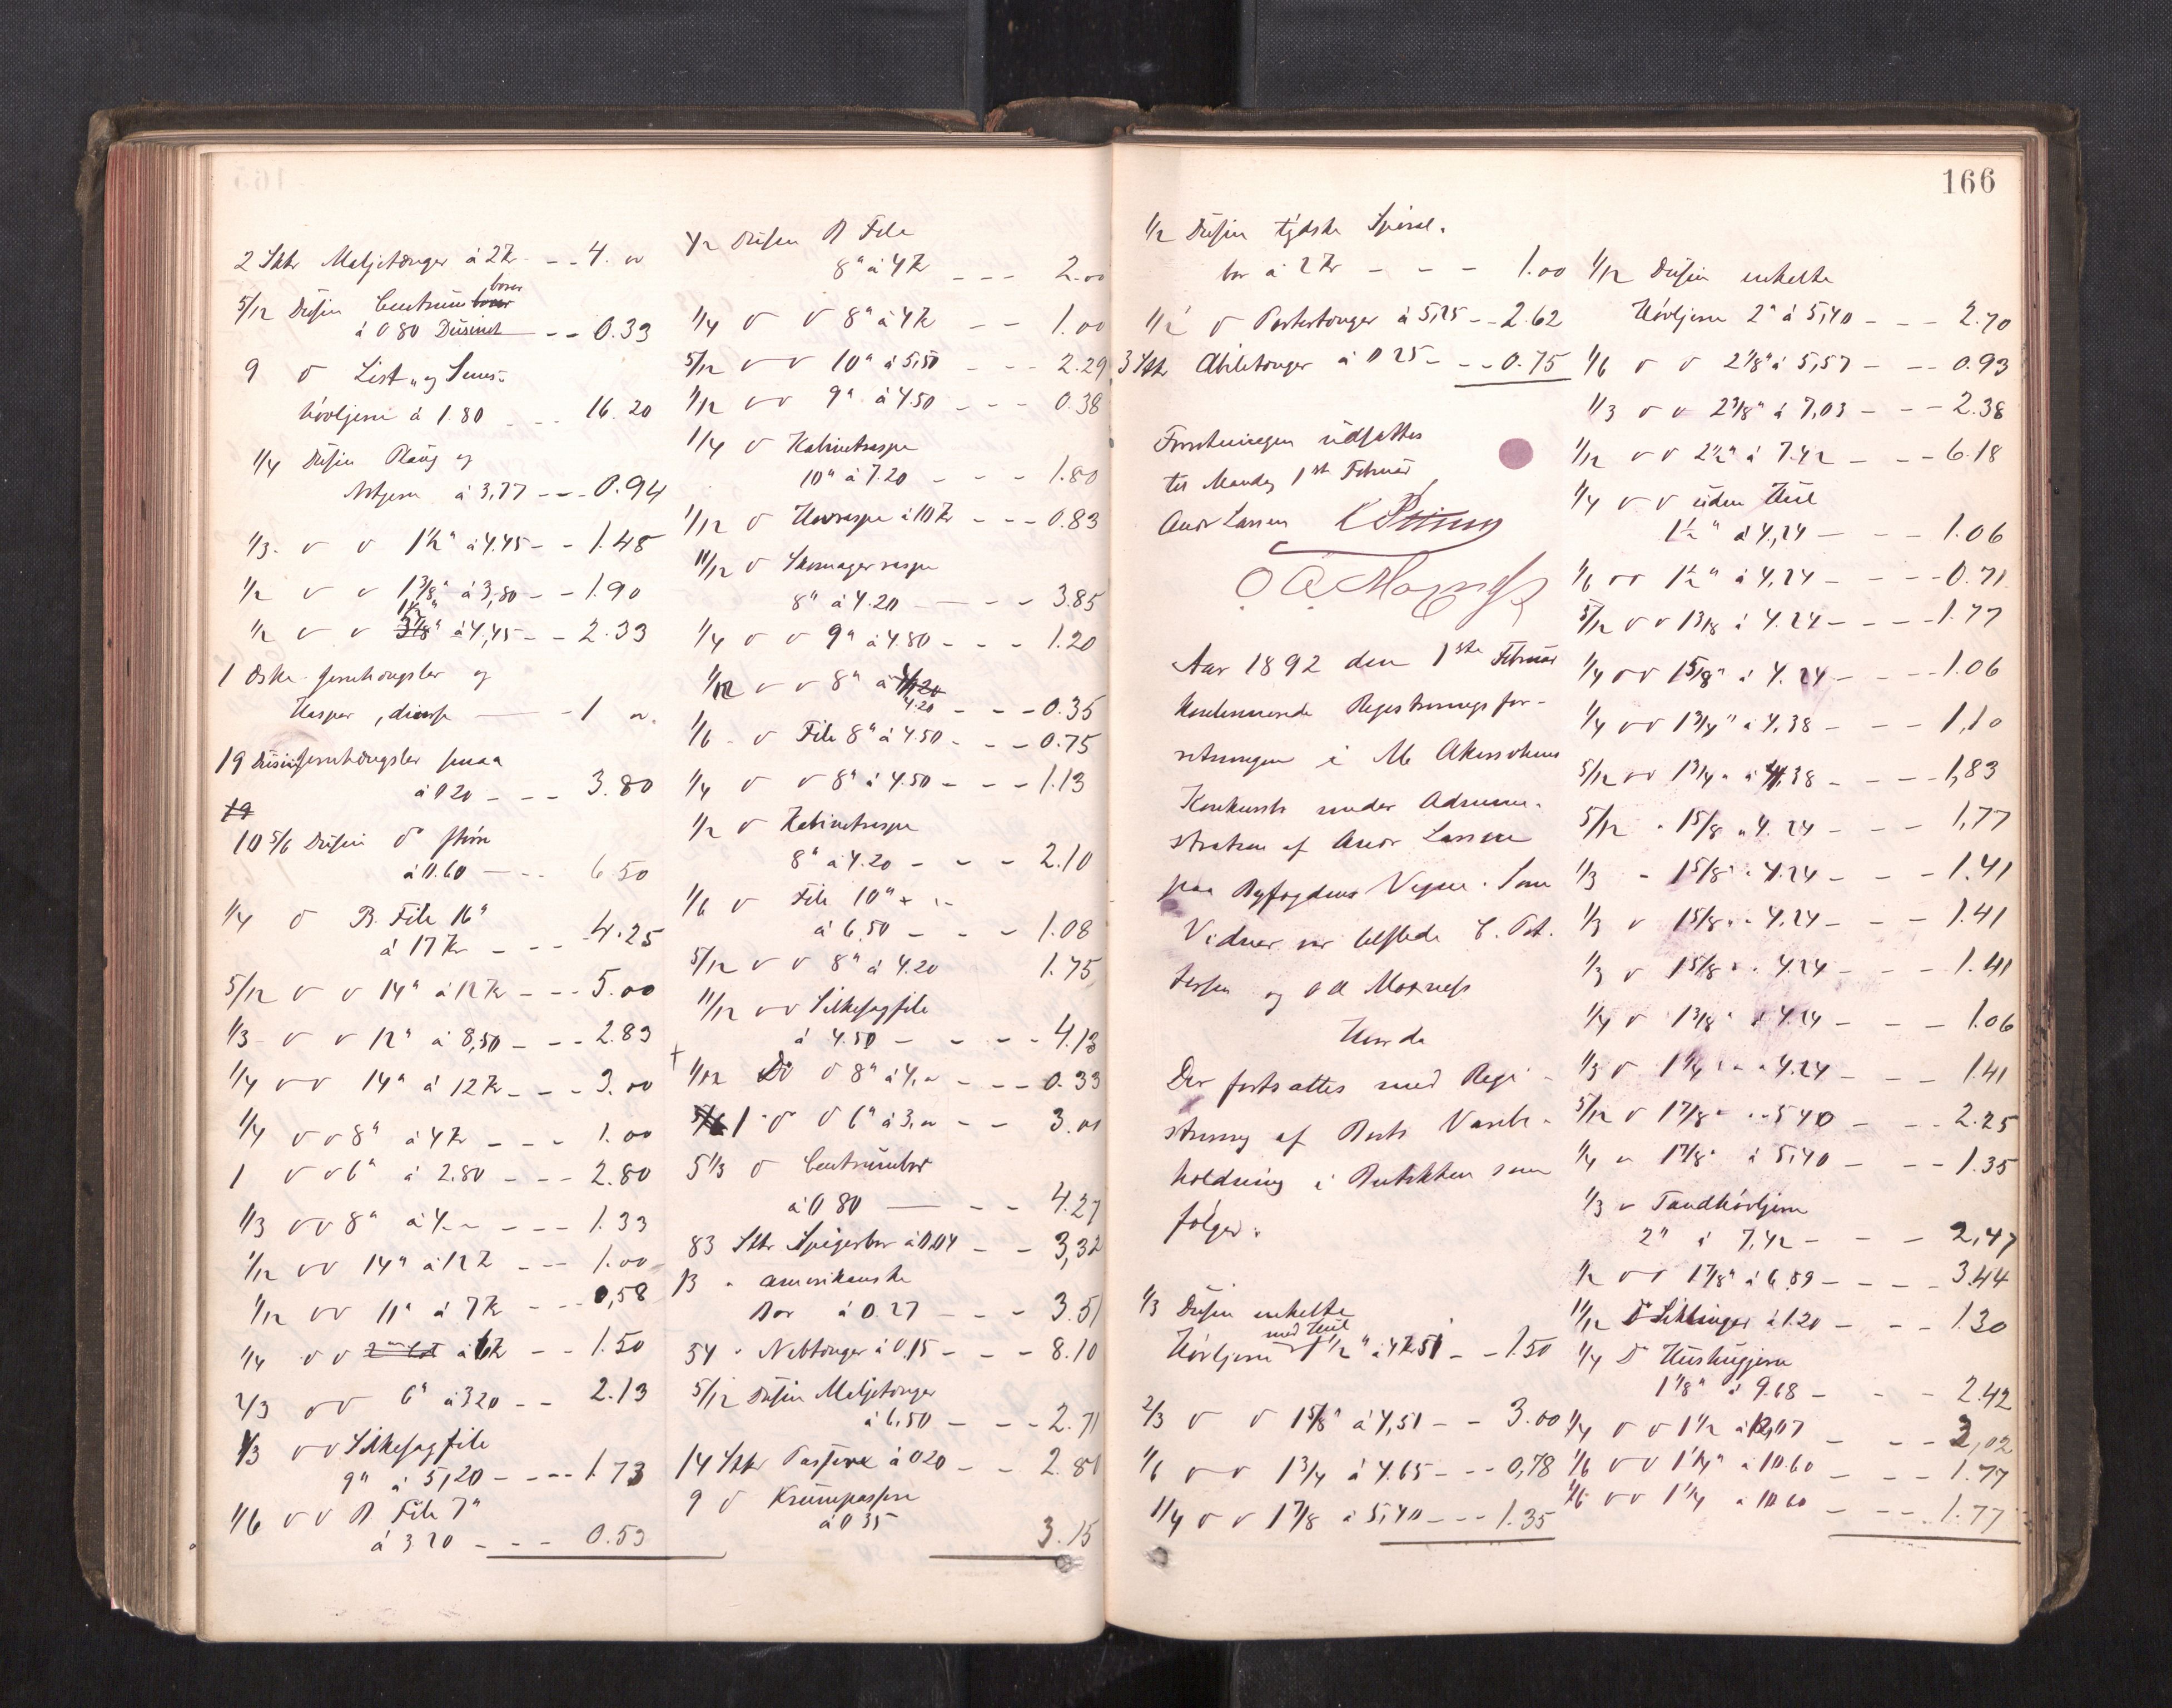 2 Stkr Maljetænger à 2 Kr - - 4. "
5/12 Dusin Centrumbor
à 0 80 Dusinet - - 0.33
9 d List- og Simshøvljern à 1.80 - - - 16.20
1/4 Dusin Pløug og
Notjern à 3,77 - - - 0.94
1/3 - d d 1½" à 4.45 - - 1.48
1/2 d d 1 3/8" à 3,80 - - 1.90
1/2 d d 1½" à 4,45 - - 2.33
1 Æske Jernhængsler og
Hasper, diverse - 1 "
19 Dusin Jernhængsler smaa
à 0 20 - - - 3.80
19
10 5/6 Dusin do større
à 0.60 - - - 6 50
1/4 d B. File 16"
à 17 Kr - - - 4.25
5/12 d d 14" à 12 Kr - - - 5.00
1/3 - d d 12" à 8,50 - - - 2.83
1/4 d d 14" à 12 Kr - - - 3.00
1/4 d d 8" à 4 Kr - - - 1.00
1 d d 6" à 2.80 - - - 2.80
1/3 d d 8" à 4 - - - - 1.33
1/12 d d 14" à 12 K - - - 1.00
1/12 d d 11" à 7 Kr - - - 0,58
1/4 d d à 6 K - - 1.50
2/3 d d 6" à 3 20 - - 2.13
1/3 d d Stiksagfile
9" à 5,20 - - - 1.73
1/6 d d B File 7"
à 3 20 - - - 0.53
1/2 Dusin B File
8" à 4 Kr - - - 2.00
1/4 d d 8" à 4 Kr - - 1.00
5/12 d d 10" à 5,50 - - - 2.29
1/12 d d 9" à 4.50 - - - 0.38
1/4 d Kabinetraspe
10" à 7.20 - - - 1.80
1/12 d Hovraspe à 10 Kr - - - 0.83
11/12 d Skomagerraspe
8" à 4.20 - - - 3.85
1/4 d d 9" à 4.80 - - - 1.20
1/12 d d 8" à 4.20 - - - 0.35
1/6 - d File 8" à 4.50 - - - 0.75
1/4 d d 8" à 4.50 - - - 1.13
1/2 d Kabinetraspe
8" à 4.20 - - - 2.10
1/6 d File 10"
à 6.50 - - - 1.08
5/12 d d 8" à 4.20 1.75
11/12 d d Stiksagfile
à 4.50 - - - - 4.13
+ 1/12 Do d 8" à 4." - - - 0.33
5/6 1 - d d 6" à 3." - - 3.00
5 1/3 d Centrumbor
à 0 80 - - 4.27
83 Stkr Spigerbor à 0,04 - - 3,32
13 " amerikanske
Bor à 0.27 - - - 3.51
54 " Nebtænger à 0,15 - - - 8.10
5/12 Dusin Maljetænger
à 6,50 - - - 2.71
14 Stkr Passere à 0 20 - - 2.80
9 d Krumpassere
à 0 35 3.15
166
1/2 Dusin tydske Spiralbor à 2 Kr - - - 1.00
1/2 d Partertænger à 5,25 - - 2.62
3 Stkr Abiletænger à 0 25 - - - 0.75
Forretningen udsattes
til Mandag 1ste Februar
Andr Larsen
O A Moxness
Aar 1892 den 1ste Februar
kontinuerede Registreringsforretningen i M. Akersohens
Konkursbo under Administration af Andr Larsen
paa Byfogdens Vegne. Som
Vidner var tilstede C. Pettersen og O A Moxness
Hvorda
Der fortsattes med Registrering af Boets Varebeholdning i Butikken som
følger:
1/3 Dusin enkelte
med Hul
Høvljern 1½" à 4 Kr 51 - - 1.50
2/3 d d 1 5/8" à 4,51 - - 3.00
1/6 d d 1 3/4 à 4.65 - - - 0,78
1/4 d d 1 7/8 à 5,40 - - - 1.35
1/12 Dusin enkelte
Høvljern 2" à 5,40 - - - 2.70
1/6 d d 2 1/8" à 5,57 - - - 0.93
1/3 d d 2 3/8" à 7,03 - - - 2.38
1/12 d d 2½" à 7.42 - - - 6.18
1/4 d d uden Hul
1½" à 4,24 - - - 1.06
1/6 d d 1½" à 4,24 - - - - 0.71
5/12 d d 1 3/8 à 4.24 - - - - 1.77
1/4 d d 1 5/8" à 4.24 - - - - 1.06
1/4 d d 1 3/4" à 4,38 - - - 1,10
5/12 d d 1 3/4 " à 4,38 - - - - 1,83
5/12 " 1 5/8 " 4.24 - - - 1,77
1/3 " 1 5/8" " 4.24 - - - 1.41
1/3 d 1 5/8 " " 4.24 - - - 1.41
1/3 d 1 5/8 " " 4.24 - - - 1.41
1/4 d 1 3/8" à 4.24 - - - 1.06
1/3 d 1 1/4 " " 4.24 - - - 1.41
5/12 d 1 7/8 " " 5 40 - - - 2.25
1/4 " 1 7/8" à 5,40 - - - 1.35
1/3 d Tandhøvljern
2" à 7,42 - - - 2,47
1/2 d d 1 7/8" à 6.89 - - - - 3.44
11/12 Do Siklinger à 1.20 - - - 1.30
1/4 Do Hushugjern
1 1/8" à 9.68 - - - 2.42
1/4 d d 1½ à 12,07 - - - 3,02
1/6 d d 1 1/4" à 10 60 - - - 1.77
1/6 d d 1 1/4 à 10 60 - - - 1.77